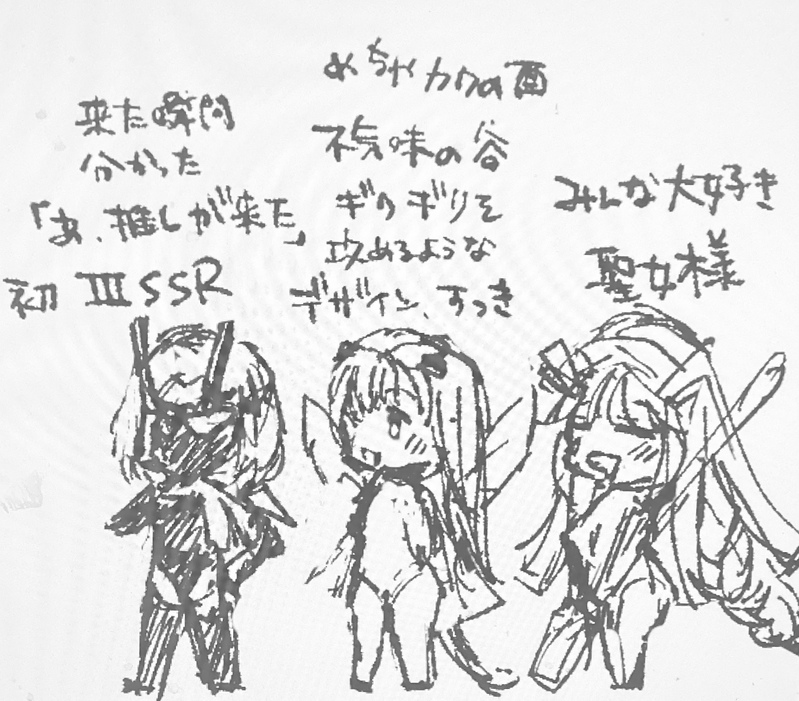 来た瞬間
分かった
「あ、推しが来た」
初 III SSR
めちゃカワの画
不気味の谷
ギリギリを
攻めるような
デザイン、すっき
みんな大好き
聖女様